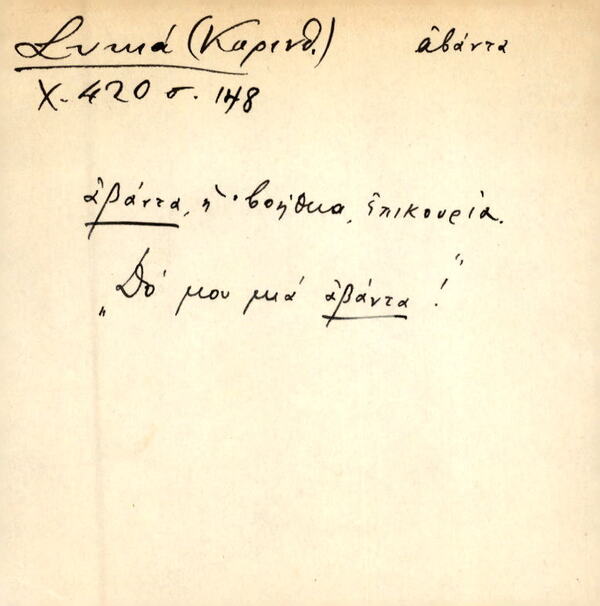 Συκιά (Κορινθ.) ἀβάντα
Χ. 420 σ. 148
ἀβάντα, ἡ· βοήθεια, ἐπικουρία.
„Δό μου μιά ἀβάντα!"